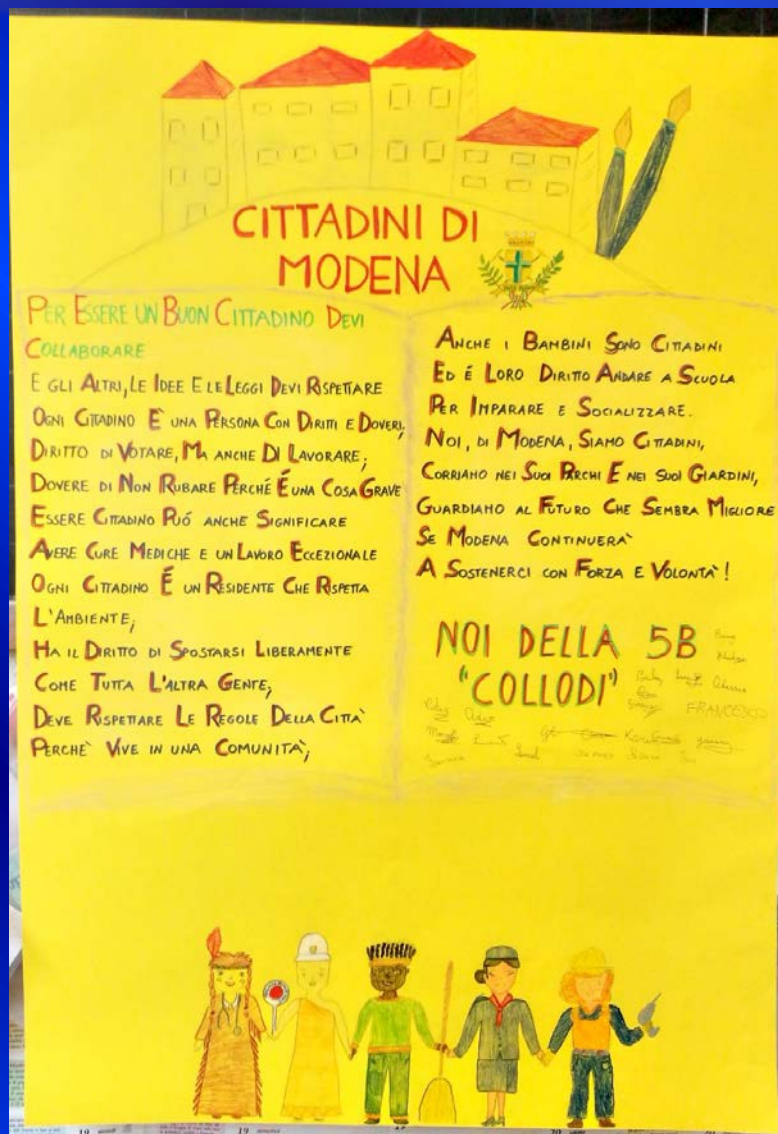 CITTADINI DI
MODENA
PER ESSERE UN BUON CITTADINO DEVI
COLLABORARE
E GLI ALTRI, LE IDEE E LE LEGGI DEVI RISPETTARE
OGNI CITTADINO È UNA PERSONA CON DIRITTI E DOVERI;
DIRITTO DI VOTARE, MA ANCHE DI LAVORARE;
DOVERE DI NON RUBARE PERCHÉ É UNA COSA GRAVE
ESSERE CITTADINO PUÓ ANCHE SIGNIFICARE
AVERE CURE MEDICHE E UN LAVORO ECCEZIONALE
OGNI CITTADINO É UN RESIDENTE CHE RISPETTA
L'AMBIENTE;
HA IL DIRITTO DI SPOSTARSI LIBERAMENTE
COME TUTTA L'ALTRA GENTE;
DEVE RISPETTARE LE REGOLE DELLA CITTÀ
PERCHÈ VIVE IN UNA COMUNITÀ;
ANCHE I BAMBINI SONO CITTADINI
ED É LORO DIRITTO ANDARE A SCUOLA
PER IMPARARE E SOCIALIZZARE.
NOI, DI MODENA, SIAMO CITTADINI,
CORRIAMO NEI SUOI PARCHI E NEI SUOI GIARDINI,
GUARDIAMO AL FUTURO CHE SEMBRA MIGLIORE
SE MODENA CONTINUERÀ
A SOSTENERCI CON FORZA E VOLONTÀ!
NOI DELLA 5B
"COLLODI"
FRANCESCO